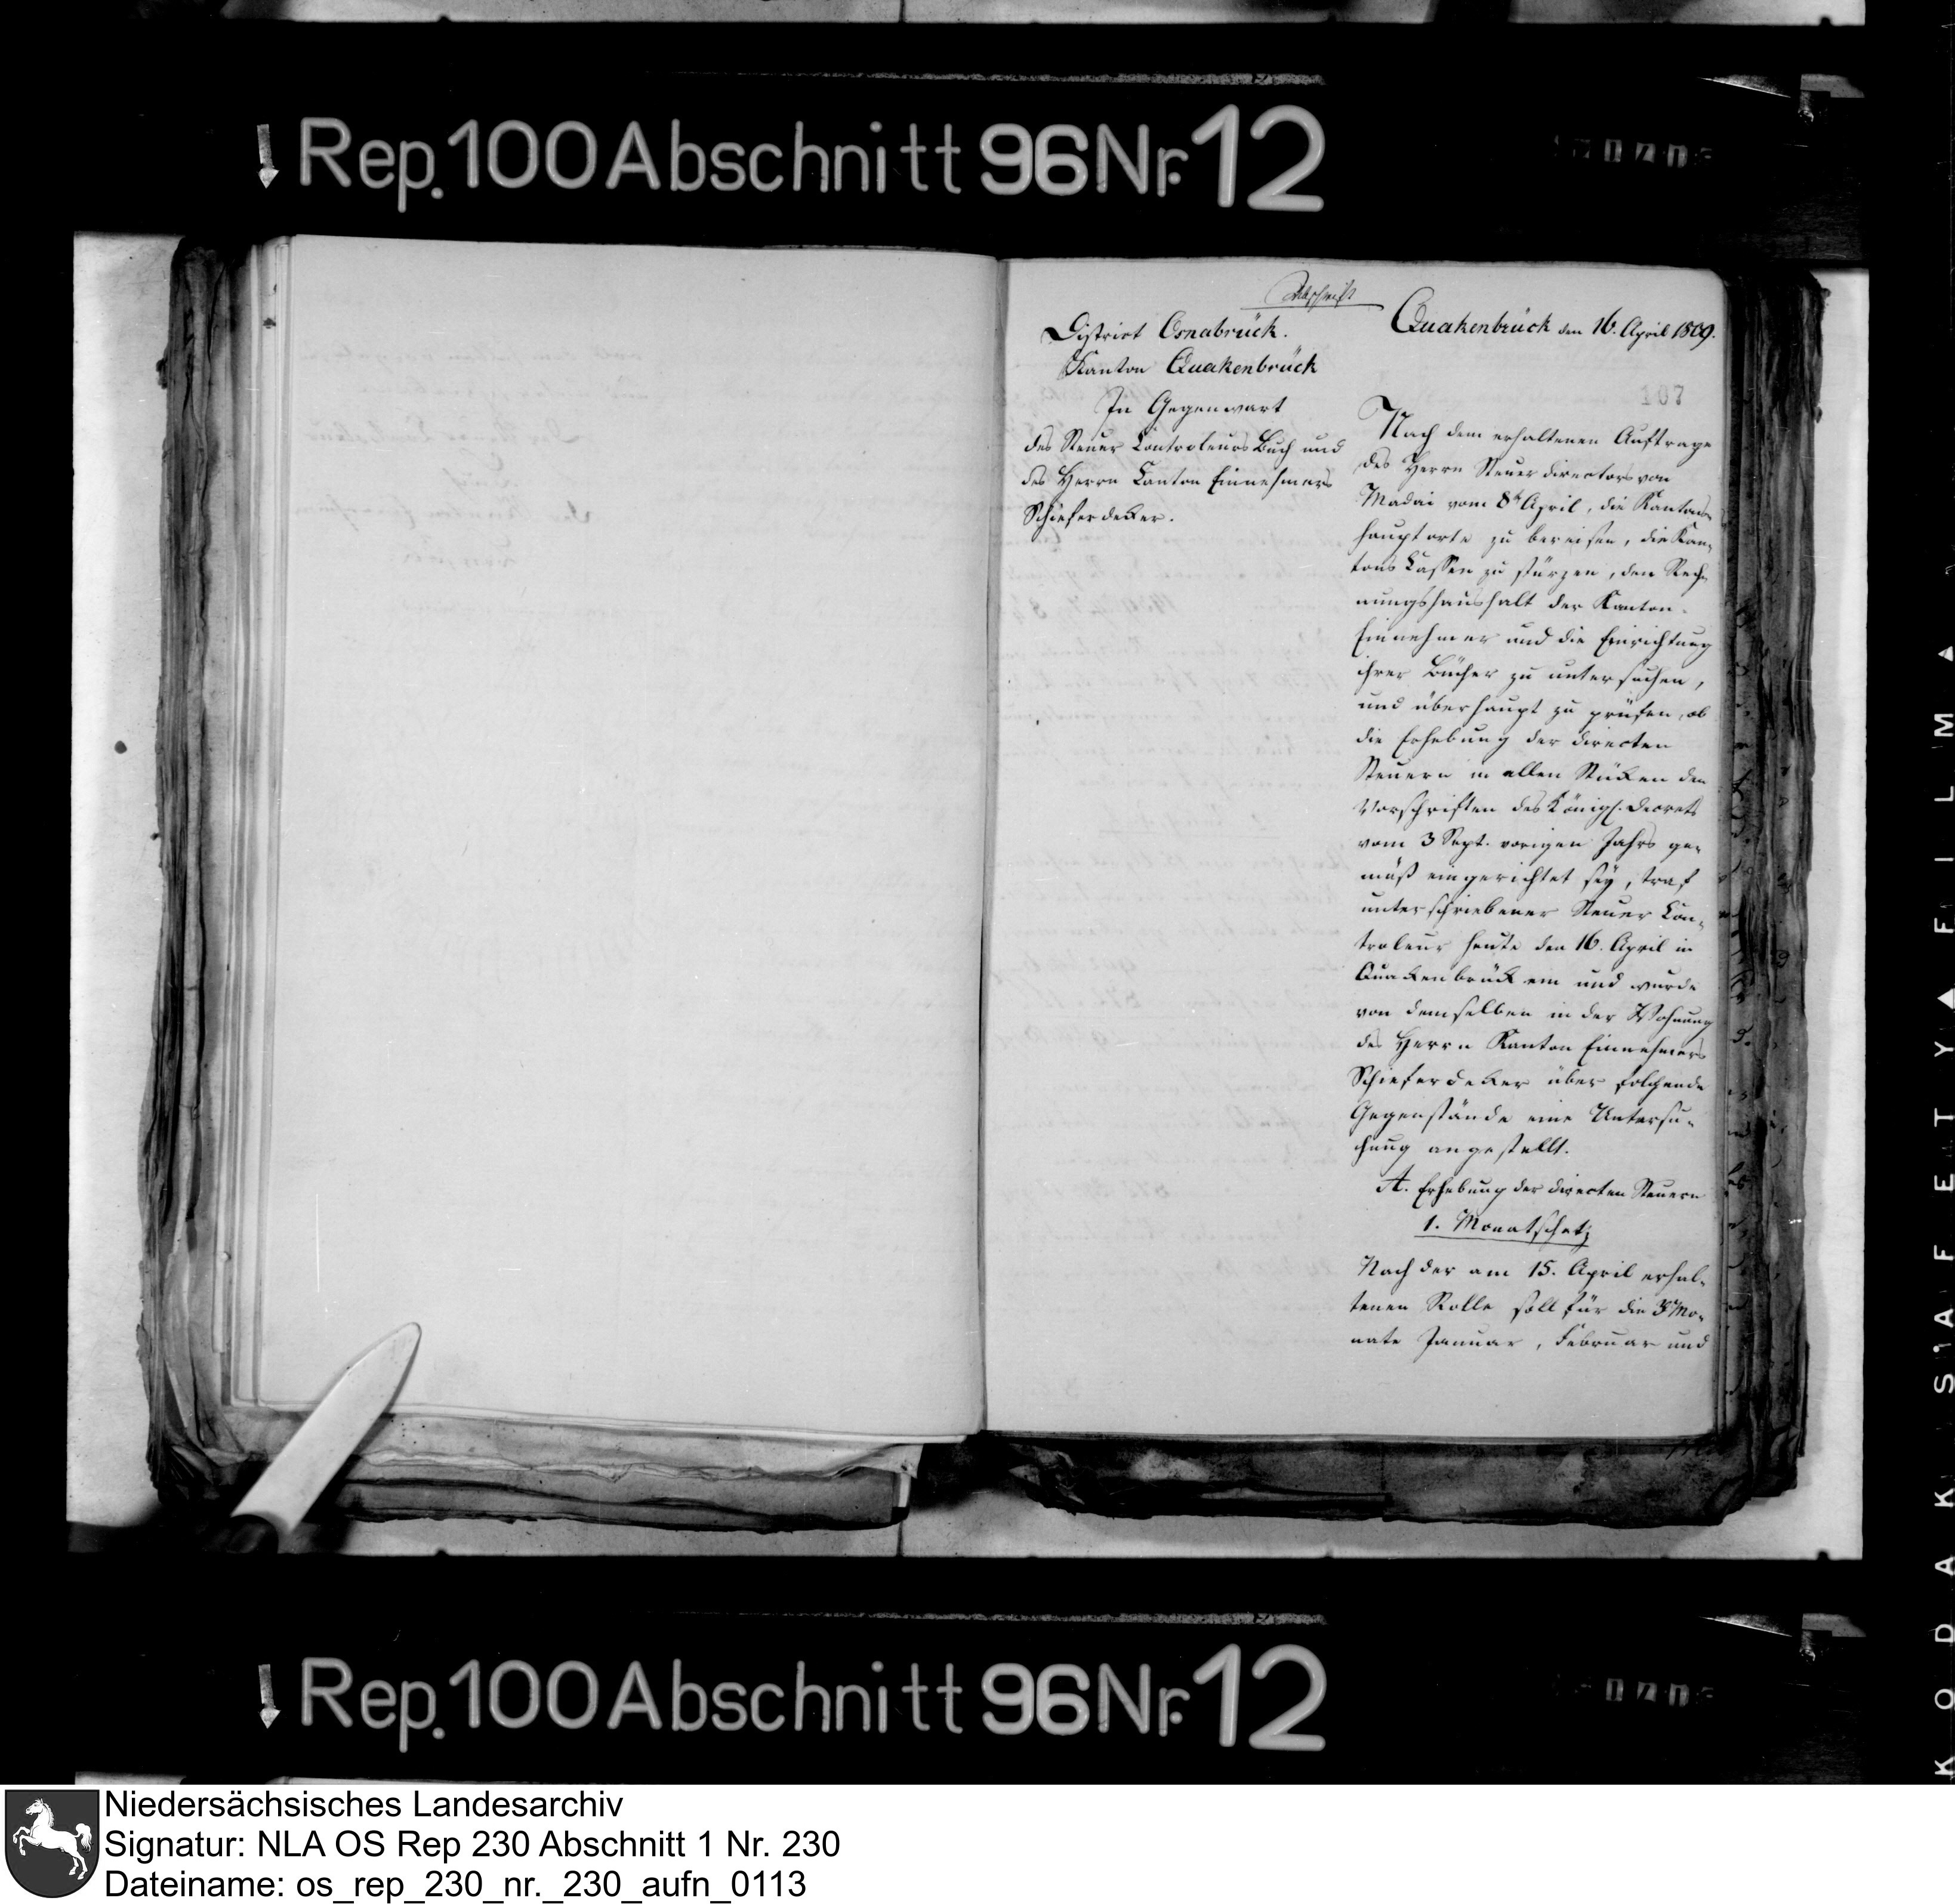 Rep. 100 Abschnitt 96 Nr. 12
Abschrift
District Osnabrück.
Kanton Quakenbrück
In Gegenwart
des Steuer Controleurs Buch und
des Herrn Canton Einnehmers
Schieferdecker.
Quakenbrück den 16. April 1809.
107
Nach dem erhaltenen Auftrage
des Herrn Steuer directors von
Madai vom 8t April, die Kantons-
hauptorte zu bereisen, die Kan-
tons Cassen zu stürzen, den Rech-
nungshaushalt der Kanton-
Einnehmer und die Einrichtung
ihrer Bücher zu untersuchen,
und überhaupt zu prüfen, ob
die Erhebung der directen
Steuern in allen Stücken den
Vorschriften des Königl. Decrets
vom 3 Sept. vorigen Jahrs ge-
mäß eingerichtet sey, traf
unterschriebener Steuer Con-
troleur heute den 16. April in
Quakenbrück ein und wurde
von demselben in der Wohnung
des Herrn Kanton Einnehmers
Schieferdecker über folgende
Gegenstände eine Untersu-
chung angestellt.
A. Erhebung der directen Steuern
1. Monatschatz
Nach der am 15. April erhal-
tenen Rolle soll für die 3 Mo-
nate Januar, Februar und
Rep. 100 Abschnitt 96 Nr. 12
KODAK SAFETY FILM
Niedersächsisches Landesarchiv
Signatur: NLA OS Rep 230 Abschnitt 1 Nr. 230
Dateiname: os_rep_230_nr._230_aufn_0113